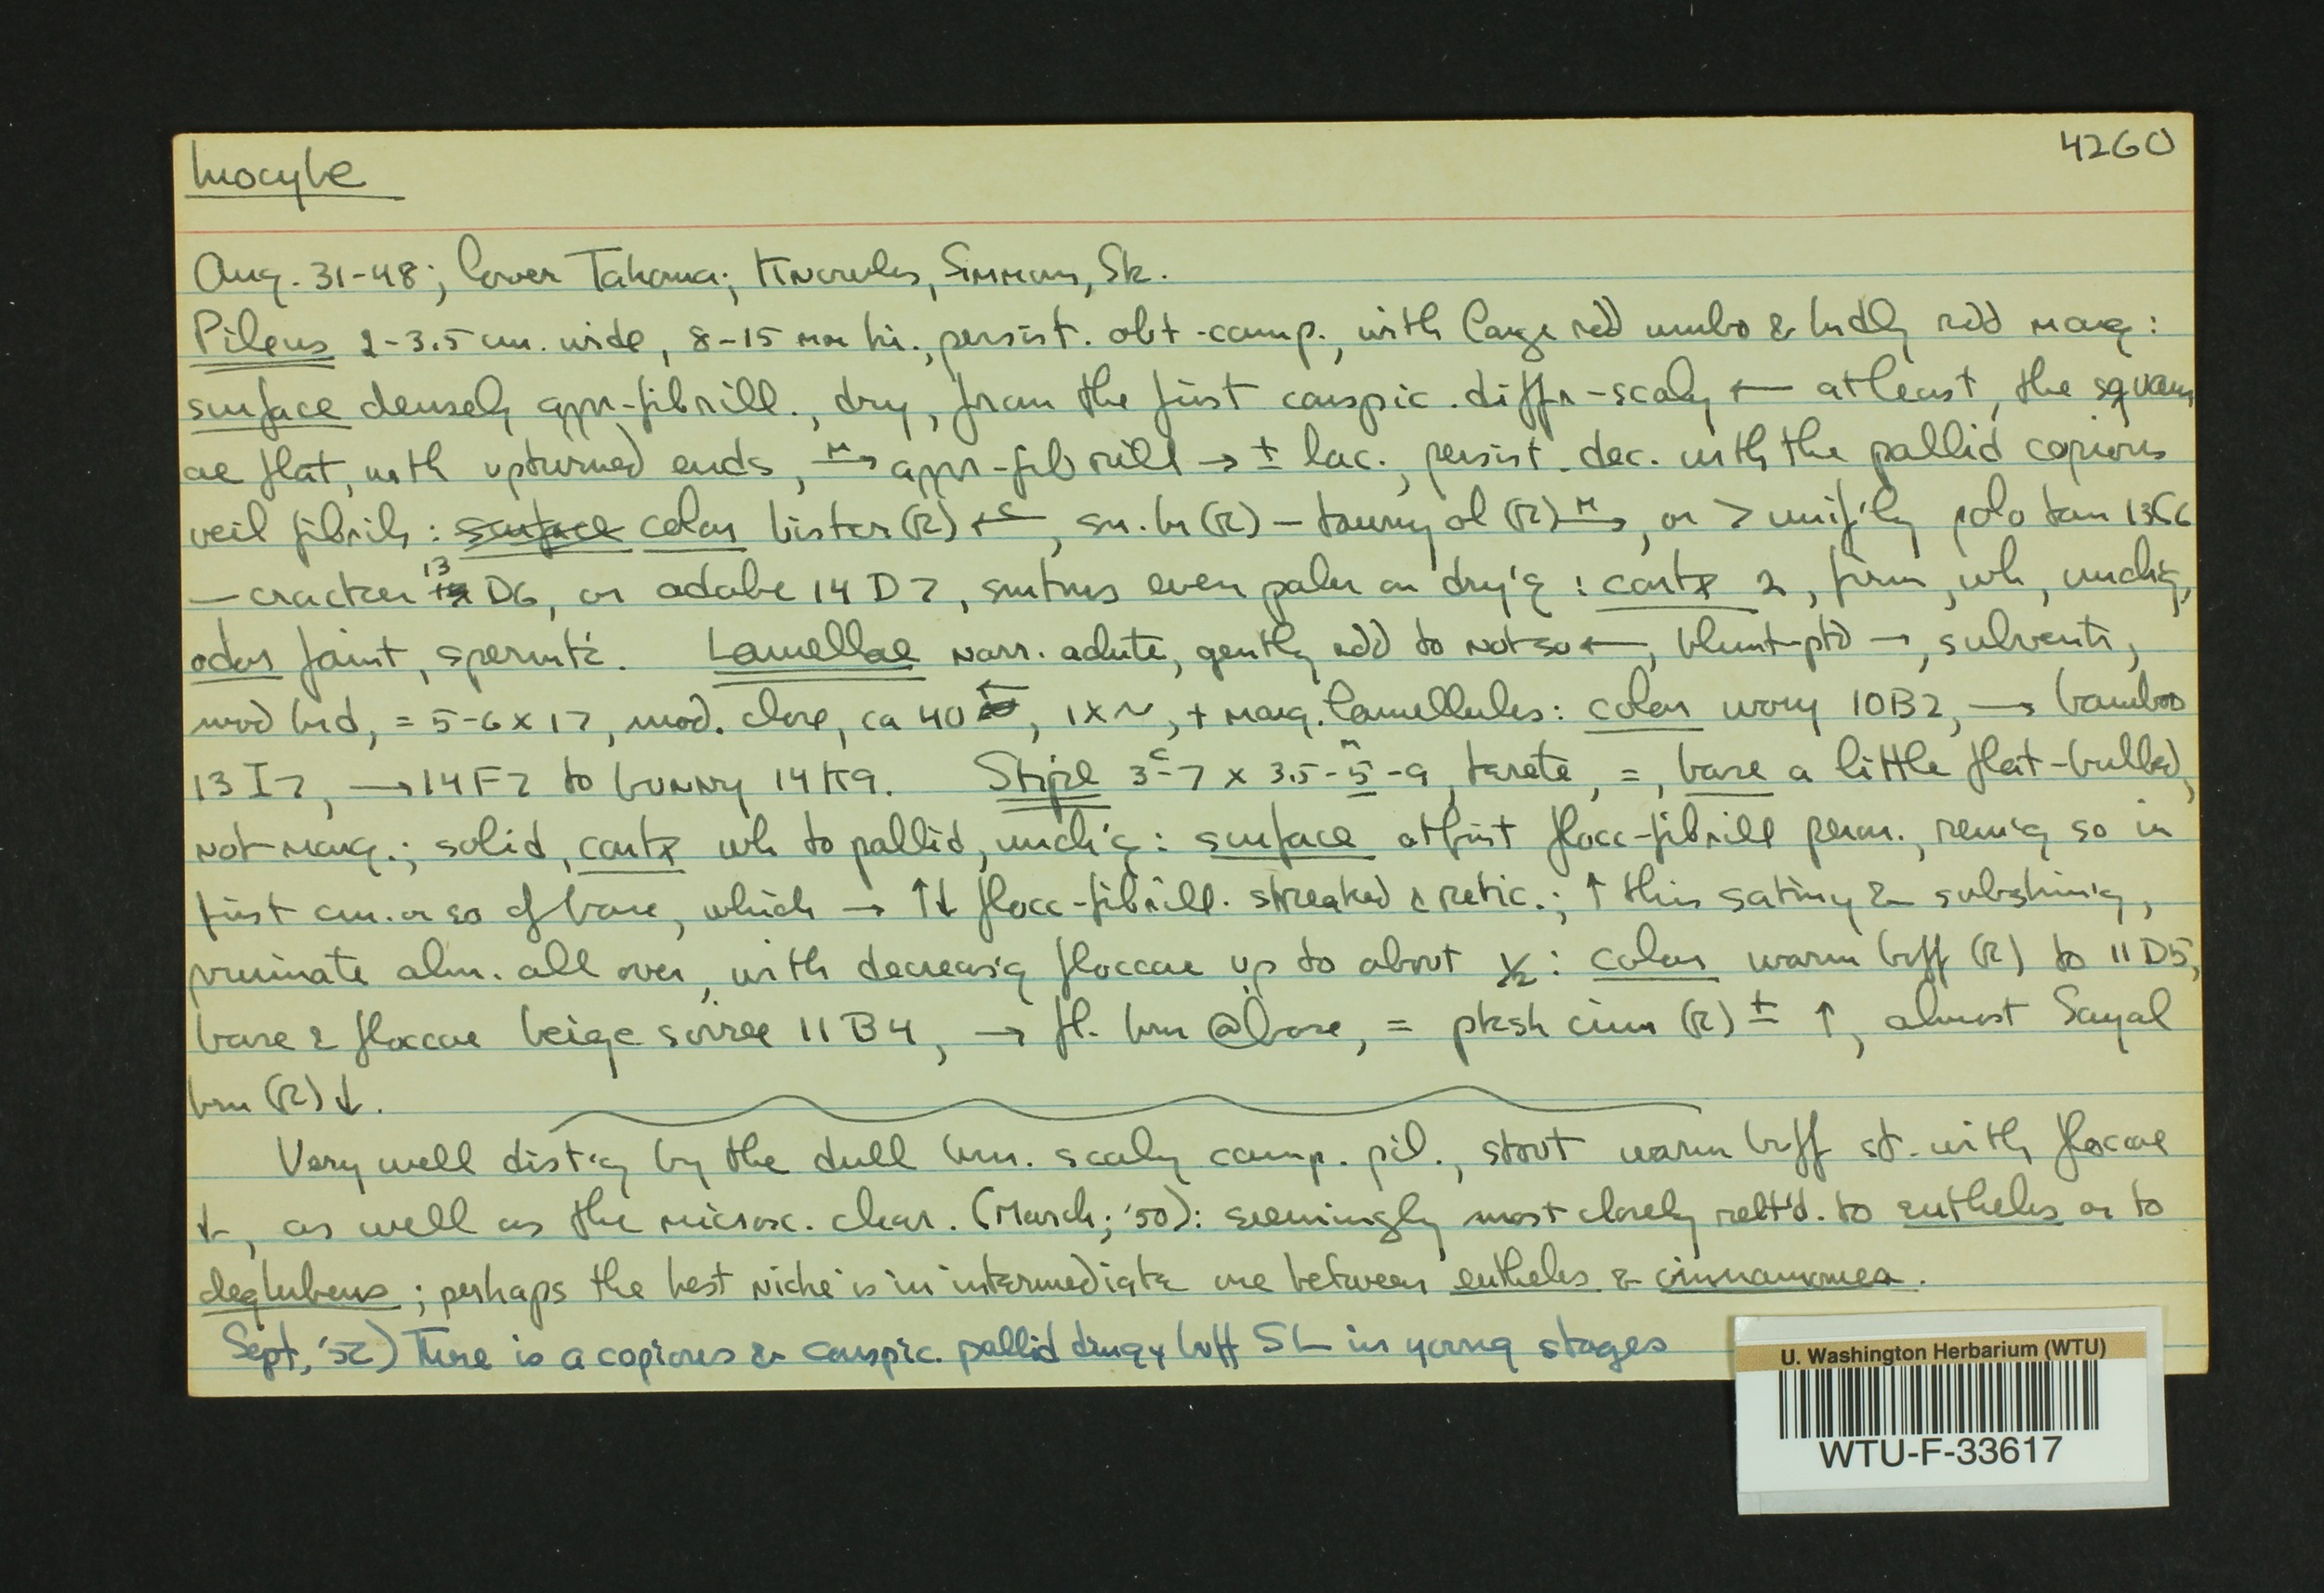 Inocybe
4260
Aug. 31-48; lower Tahoma; Knowles, Simmons, Sk.
Pileus 2-3.5 cm. wide, 8-15 mm hi., persist. obt-camp., with large rdd umbo & brdly rdd marg:
surface densely appr-fibrill., dry, from the first conspic. diffr-scaly ← at least, the squam
ae flat, with upturned ends, M→ appr-fibrill → ± lac., persist. dec. with the pallid copious
veil fibrils: surface color bister (R) ← c, sn. br (R) – tawny ol (R) M→, or > unif'ly polo tan 13C6
— cracker 13 D6, or adobe 14 D7, smtms even paler on dry'g: cortx 2, firm, wh, unchg,
odor faint, spermt'c. Lamellae narr. adnte, gently rdd to not so ←, blunt-ptd →, subventr,
mod brd, = 5-6 x 17, mod. close, ca 40, 1x~, + marg. lamellules: color ivory 10B2, → bamboo
13 I7, → 14F7 to bunny 14K9. Stipe 3-7 x 3.5-5-9, terete, =, base a little flat-bulbd,
not marg.; solid, cortx wh to pallid, unch'g: surface at first flocc-fibrill perm., rem'g so in
first cm. or so of base, which → ↑↓ flocc-fibrill. streaked & retic.; ↑ this satiny & subshin'g,
pruinate alm. all over, with decreas'g floccae up to about 1/2: color warm buff (R) to 11 D5,
base & floccae beige soiree 11 B4, → fl. brn @ base, = pksh cinn (R) ± ↑, almost Sayal
brn (R) ↓.
Very well dist'g by the dull brn. scaly camp. pil., stout warm buff st. with floccae
↓, as well as the microsc. char. (March; '50): seemingly most closely relt'd. to eutheles or to
deglubens; perhaps the best niche is in intermediate one between eutheles & cinnamomea.
Sept, '52) There is a copious & conspic. pallid dingy buff SL in young stages
U. Washington Herbarium (WTU)
WTU-F-33617